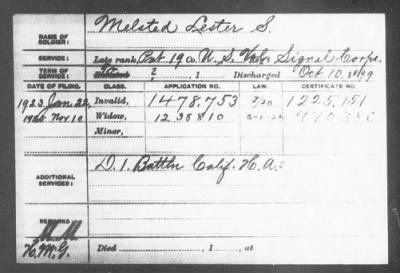 NAME OF SOLDIER: Melsted Lester S.
SERVICE: Late rank, Pvt. 19 Co. U.S. Vols. Signal Corps.
TERM OF SERVICE: 2, 1 Discharged Oct 10, 1899
DATE OF FILING. CLASS. APPLICATION NO. LAW. CERTIFICATE NO.
1923 Jan 22, Invalid, 1478,753 1225,151
Nov 10 Widow, 1238810
Minor,
ADDITIONAL SERVICES: D. 1. Battln Calif. H.A.
REMARKS
H.M.G. Died , 1 , at